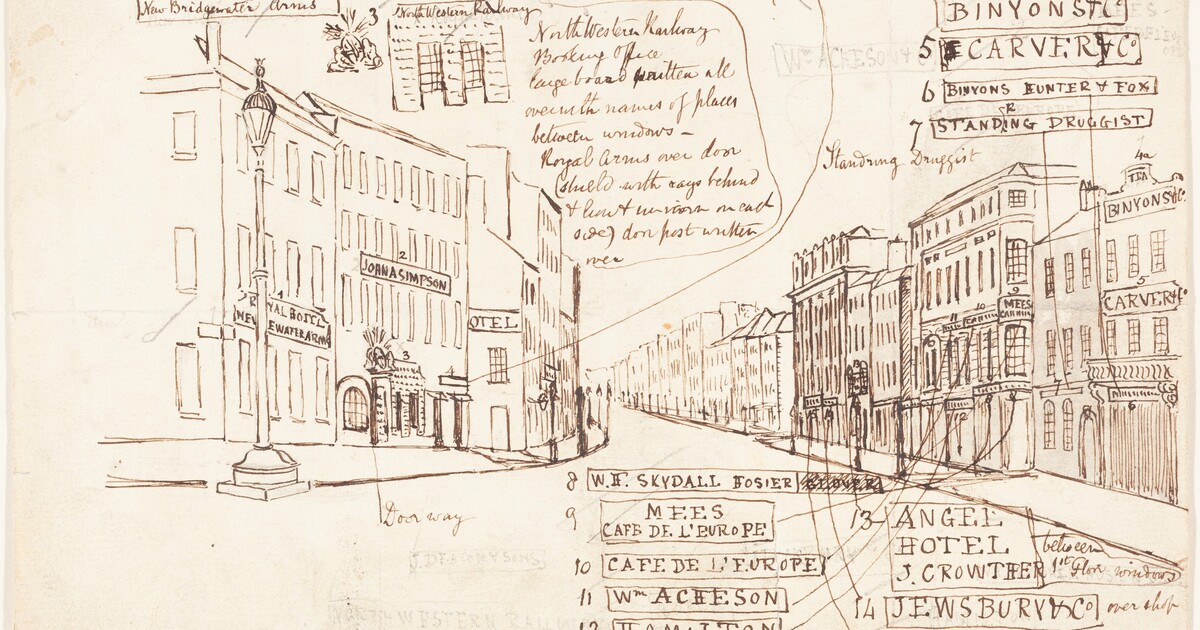 New Bridgewater Arms
3
North Western Railway
North Western Railway
Booking Office
large board written all
over with names of places
between windows –
Royal Arms over door
(shield with rays behind
& lion & unicorn on each
side) door post written
over
BINYONS & Co
5 CARVER & Co
6 BINYONS HUNTER & FOX
7 STANDING DRUGGIST
R
Standring Druggist
Wm ACHESON &
4a
TEA
BINYONS & Co.
5
CARVER & Co
2
JOHN A SIMPSON
1
ROYAL HOTEL
NEW
EWATER ARMS
OTEL
3
4
9
MEES
10
11
12
8
7
6
13
14
Door way
8 W.H. SKYDALL HOSIER GLOVER
9 MEES
CAFE DE L'EUROPE
10 CAFE DE L'EUROPE
11 Wm ACHESON
12 HAMILTON
13 ANGEL
HOTEL
J. CROWTHER
between
1st Floor windows
14 JEWSBURY & Co over shop
J. DEACON & SONS
NORTH WESTERN RAILW